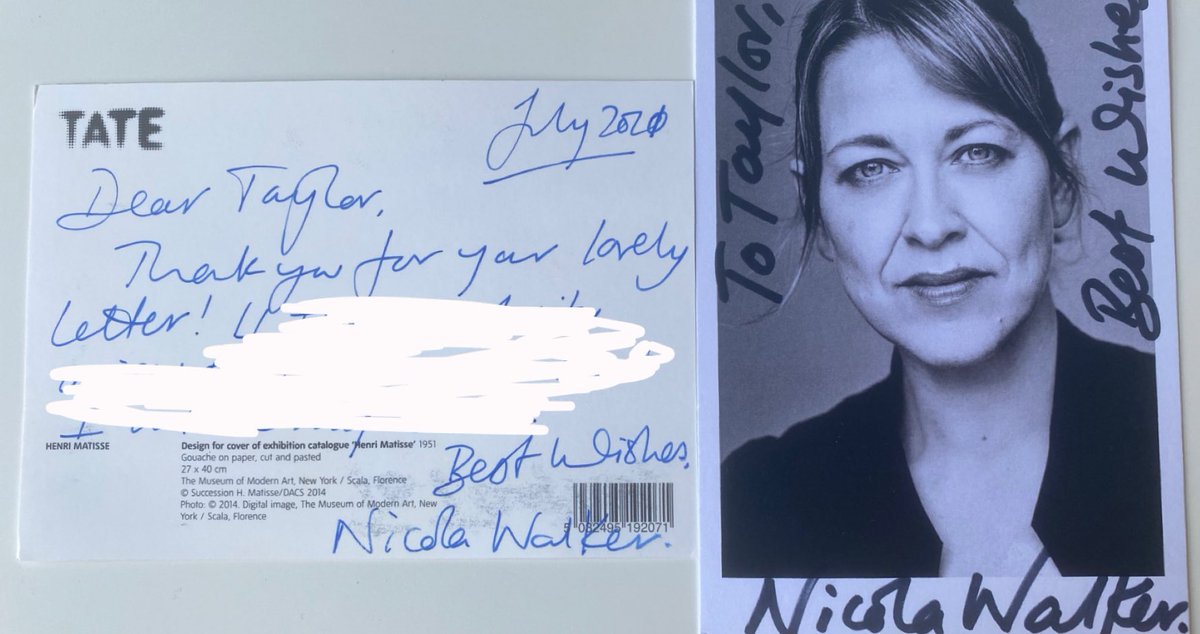 TATE
July 2020
Dear Taylor,
Thank you for your lovely
letter!
I
HENRI MATISSE
Design for cover of exhibition catalogue 'Henri Matisse' 1951
Gouache on paper, cut and pasted
27 x 40 cm
The Museum of Modern Art, New York / Scala, Florence
© Succession H. Matisse/DACS 2014
Photo: © 2014. Digital image, The Museum of Modern Art, New
York / Scala, Florence
Best Wishes,
Nicola Walker.
5 032495 192071
To Taylor,
Best Wishes
Nicola Walker.